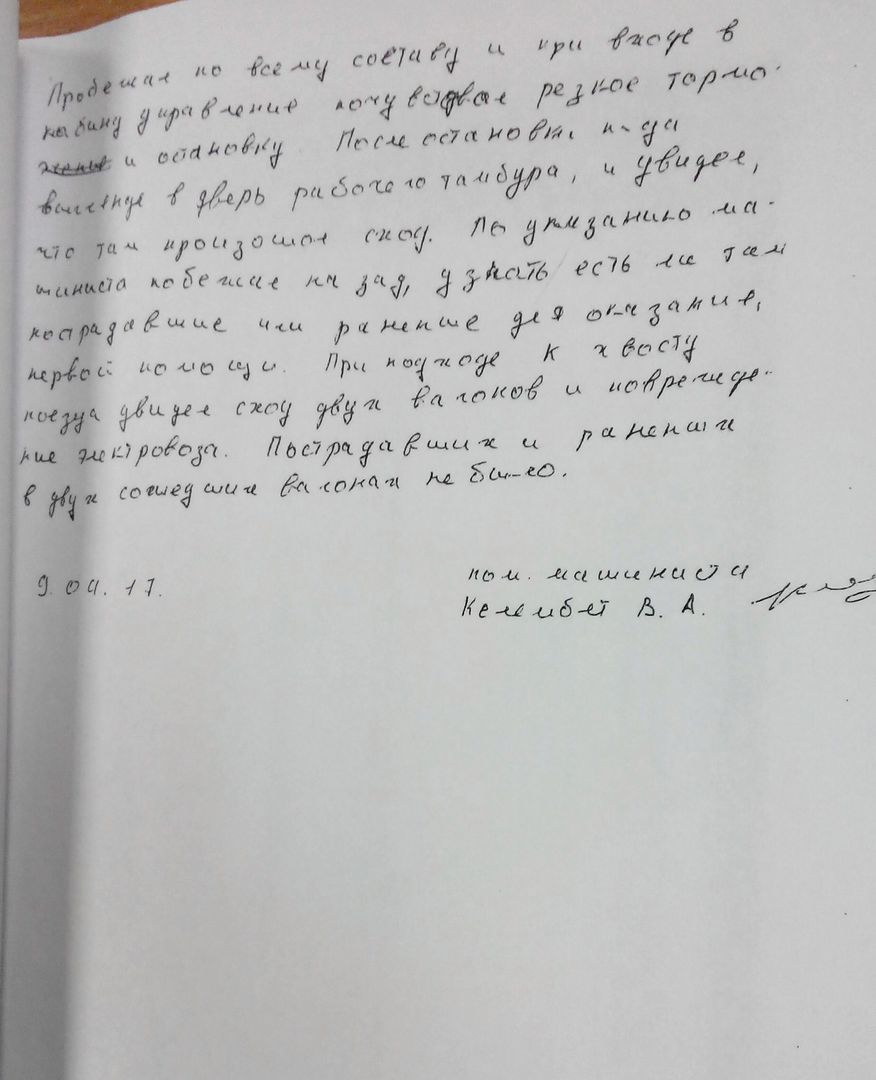 Пробежал по всему составу и при входе в
кабину управление почувствовал резкое тормо-
жение и остановку. После остановки п-да
в дверь рабочего тамбура, и увидел,
что там произошол сход. По указанию ма-
шиниста побежал на зад, узнать есть ли там
пострадавшие или раненые для оказание,
первой помощи. При подходе к хвосту
поезда увидел сход двух вагонов и поврежде-
ние электровоза. Пострадавших и раненых
в двух сошедших вагонах не было.
9.04.17.
пом. машиниста
В. А.